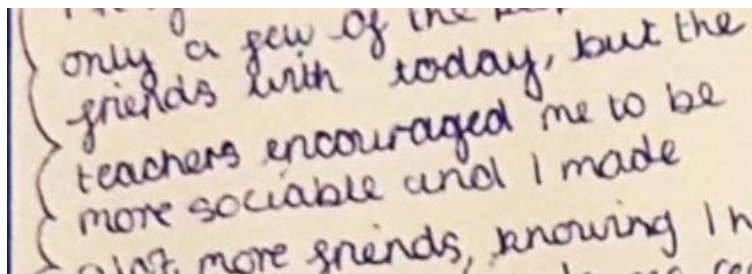 only a few of the
friends with today, but the
teachers encouraged me to be
more sociable and I made
more friends, knowing I